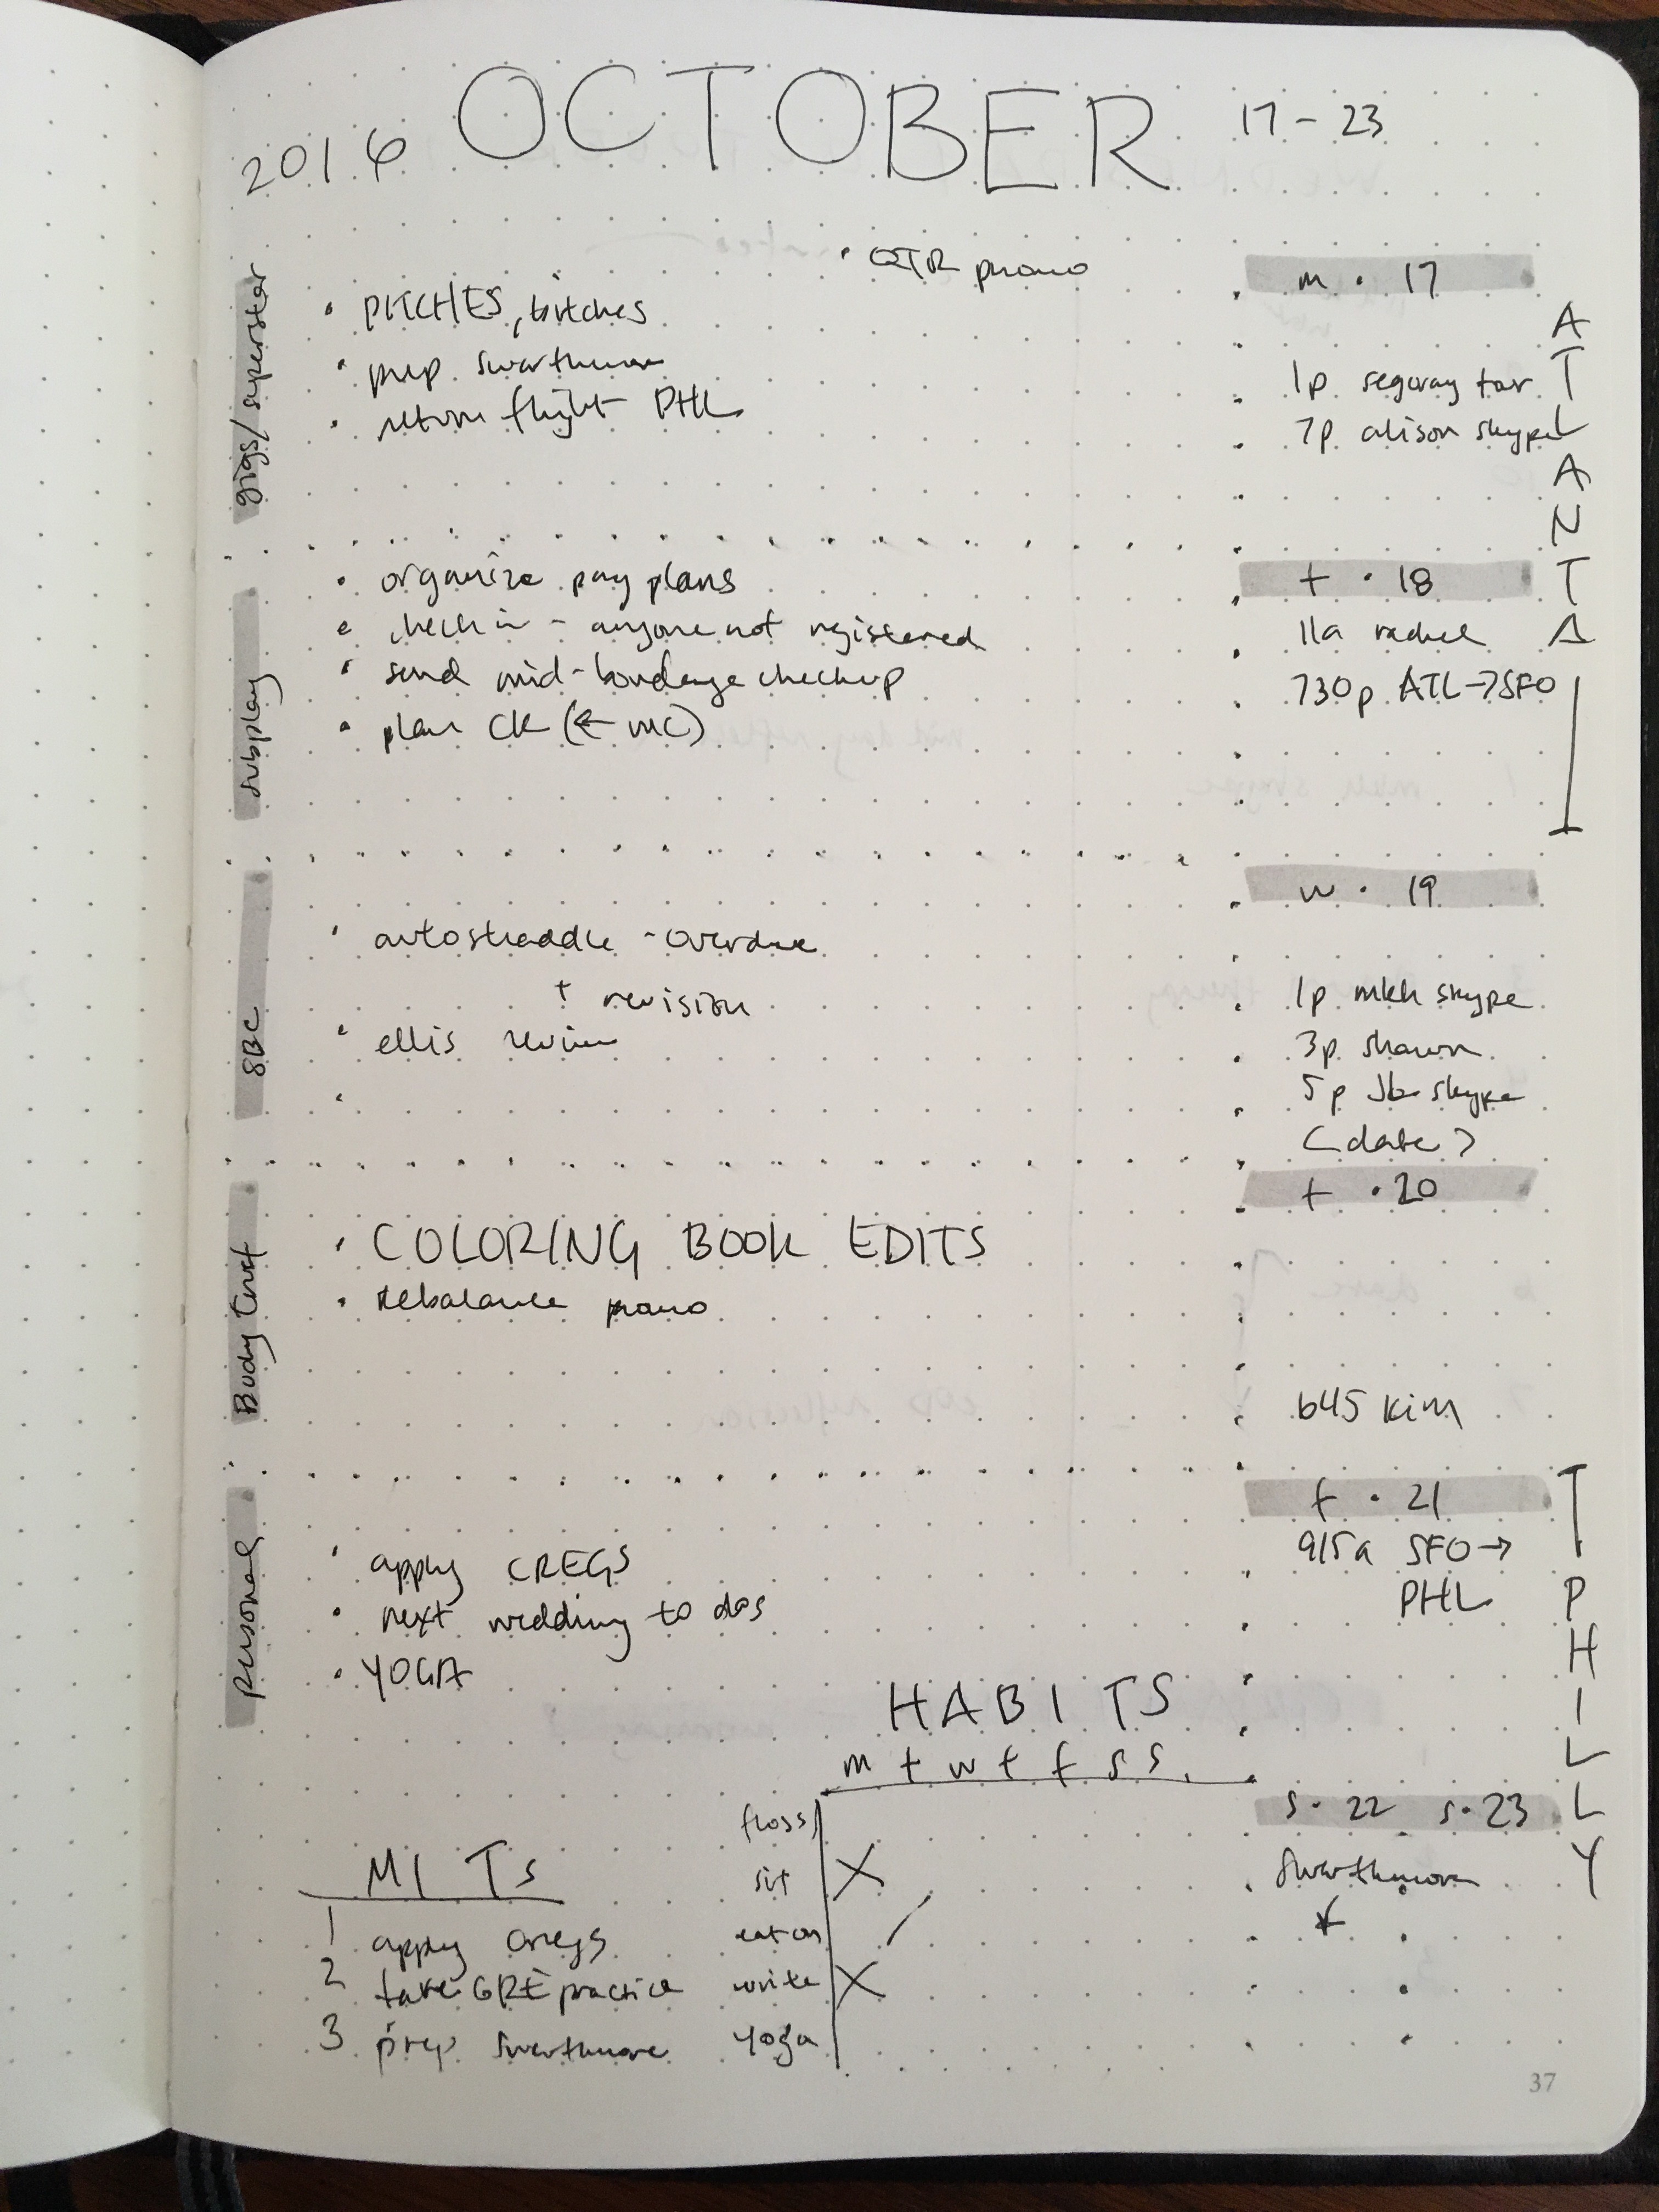 2016 OCTOBER 17 - 23
gigs/superstar
• QTR promo
• PITCHES, bitches
• prep swarthmore
• return flight PHL
subplay
• organize pay plans
• check in - anyone not registered
• send mid-bondage checkup
• plan CK (← MC)
SBC
• autostraddle - overdue
+ revision
• ellis review
Body Trust
• COLORING BOOK EDITS
• Rebalance promo
Personal
• apply CREGS
• next wedding to dos
• YOGA
MITs
1 apply cregs
2 take GRE practice
3 prep swarthmore
HABITS
m t w t f s s
floss
sit X
eat on /
write X
yoga
m • 17
1p segway tour
7p alison skype
t • 18
11a rachel
730p ATL→SFO
ATLANTA
w • 19
1p mkh skype
3p shawn
5p Jb skype
(date)
t • 20
645 Kim
f • 21
915a SFO→
PHL
PHILLY
s • 22 s • 23
Swarthmore
37